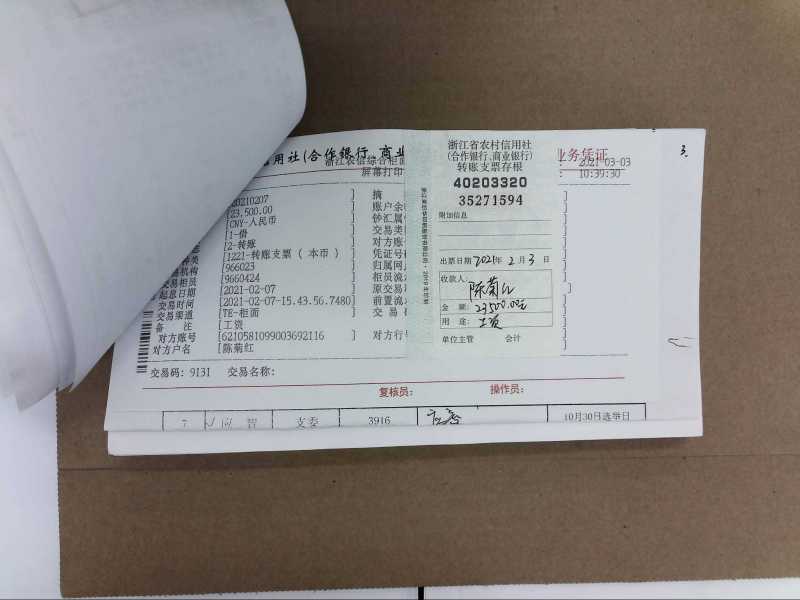 用社(合作银行、商业
业务凭证
浙江农信综合柜面
2021-03-03
屏幕打印
10:39:30
3.
20210207
摘
[23,500.00
账户余
[CNY-人民币
钞汇属
[1-借
交易类
[2-转账
对方账
[1221-转账支票(本币)
凭证号
机构
[966023
归属网
交易柜员
[9660424
柜员流
起息日期
[2021-02-07
原交易
交易时间
[2021-02-07-15.43.56.7480]
前置流
交易渠道
[TE-柜面
交易
备 注
[工资
对方账号
[6210581099003692116
对方行
对方户名
[陈菊红
交易码: 9131 交易名称:
复核员: 操作员:
浙江省农村信用社
(合作银行、商业银行)
转账支票存根
40203320
35271594
附加信息
出票日期 2021年 2月 3日
收款人:
陈菊红
金 额: 23500.00元
用 途: 工资
单位主管 会计
7
支委
3916
10月30日选举日